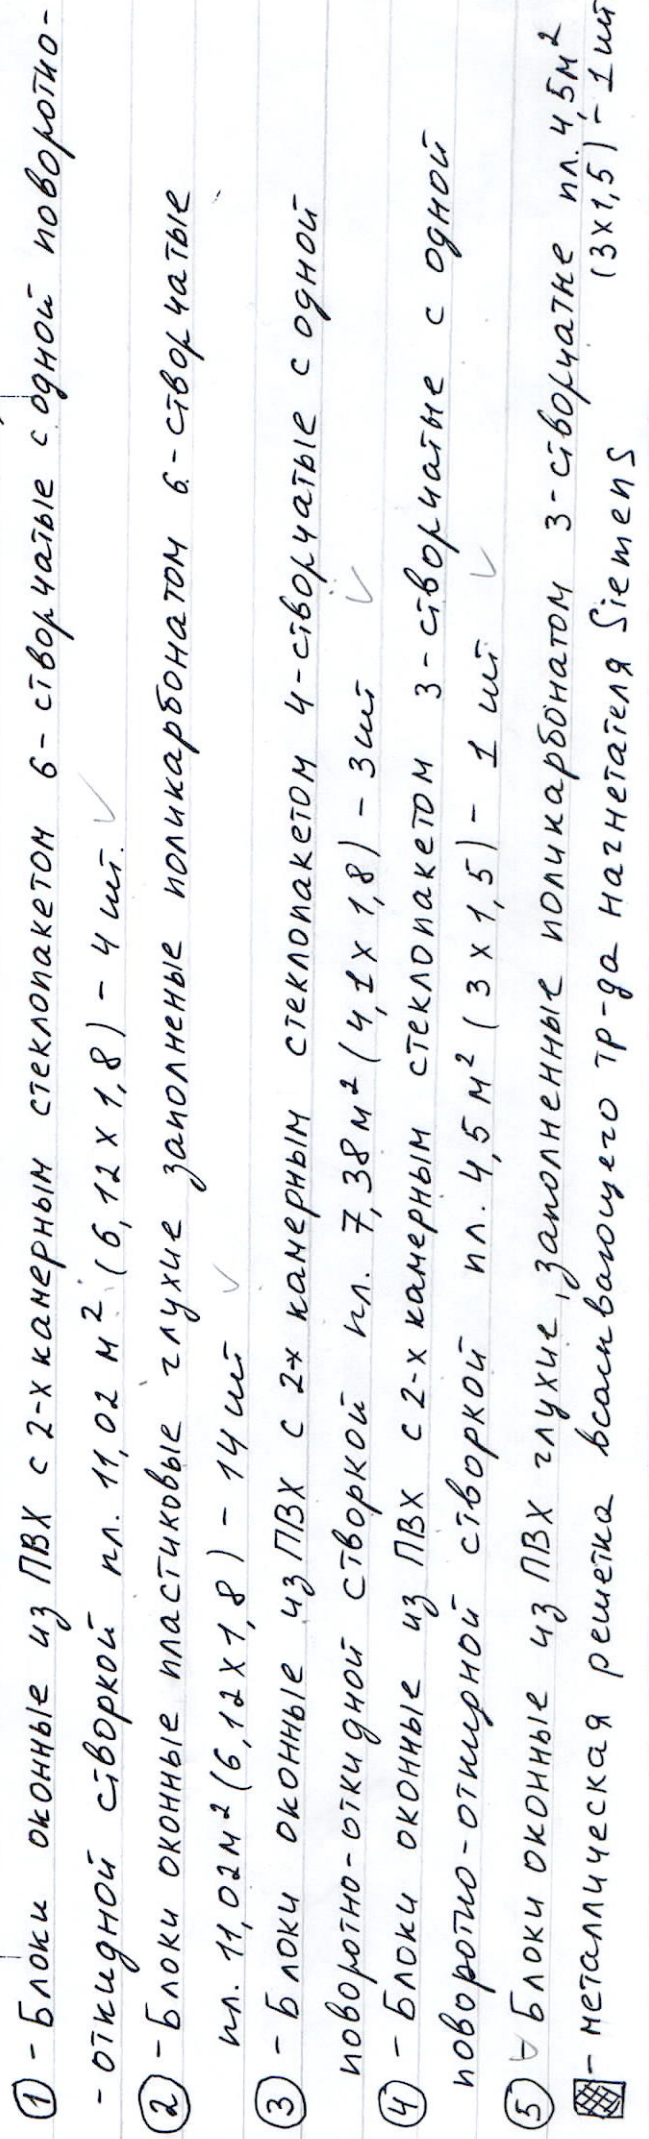 ① - Блоки оконные из ПВХ с 2-х камерным стеклопакетом 6-створчатые с одной поворотно-
-откидной створкой пл. 11,02 м² (6,12 х 1,8) - 4 шт.
② - Блоки оконные пластиковые глухие заполненые поликарбонатом 6-створчатые
пл. 11,02 м² (6,12 х 1,8) - 14 шт
③ - Блоки оконные из ПВХ с 2-х камерным стеклопакетом 4-створчатые с одной
поворотно-откидной створкой пл. 7,38 м² (4,1 х 1,8) - 3 шт
④ - Блоки оконные из ПВХ с 2-х камерным стеклопакетом 3-створчатые с одной
поворотно-откидной створкой пл. 4,5 м² (3 х 1,5) - 1 шт
⑤ Блоки оконные из ПВХ глухие, заполненные поликарбонатом 3-створчатые пл. 4,5 м²
(3 х 1,5) - 1 шт
- металлическая решетка всасывающего тр-да нагнетателя Siemens